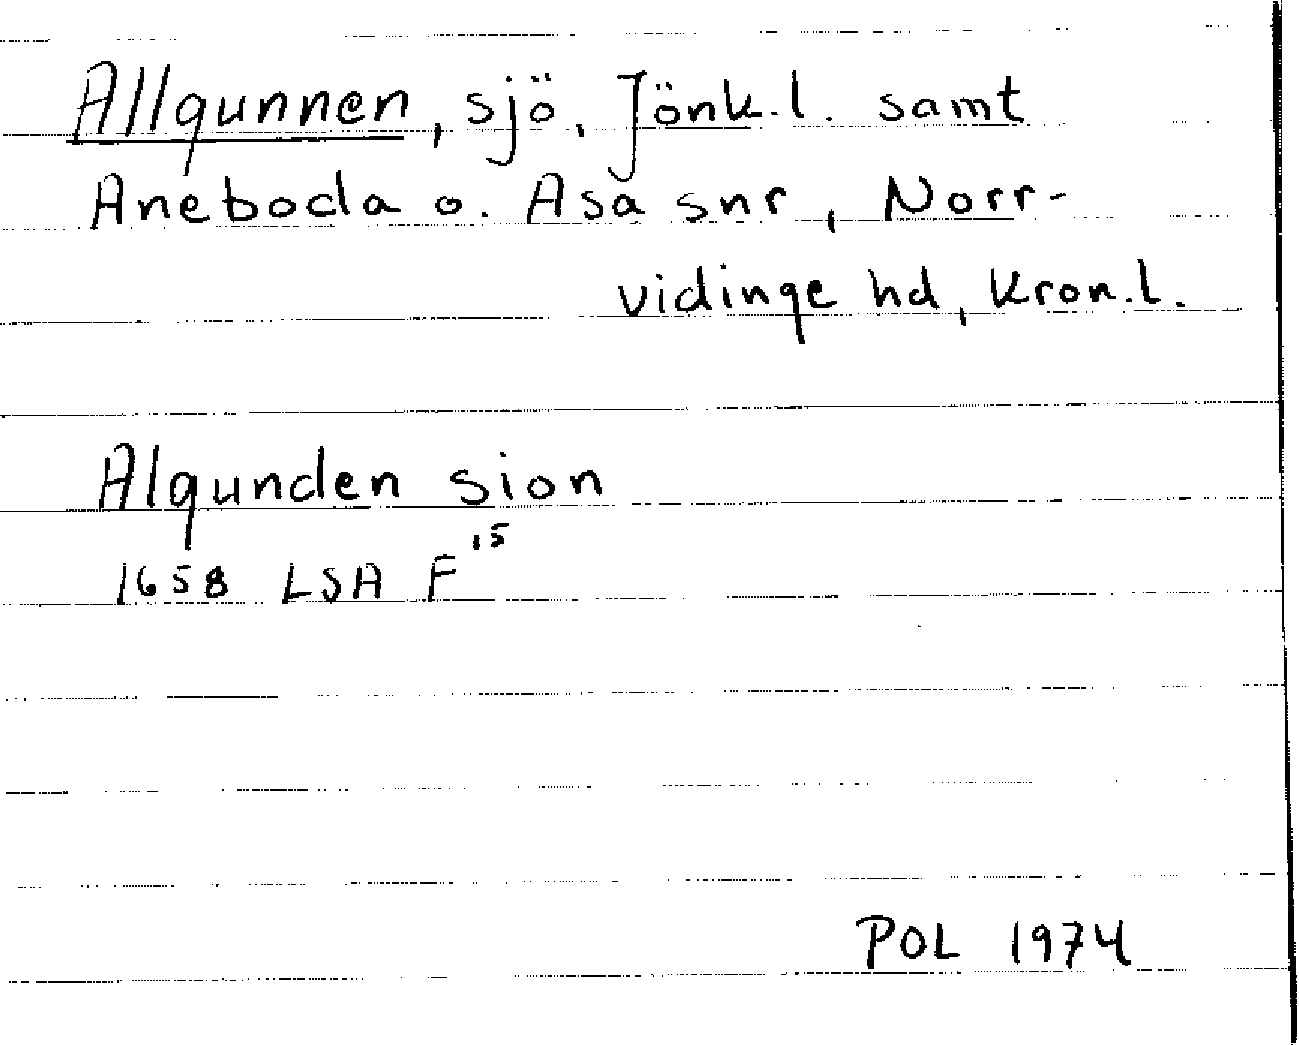 Allgunnen, sjö, Jönk.l. samt
Aneboda o. Asa snr, Norr-
vidinge hd, Kron.l.
Algunden sion
1658 LSA F 15
POL 1974